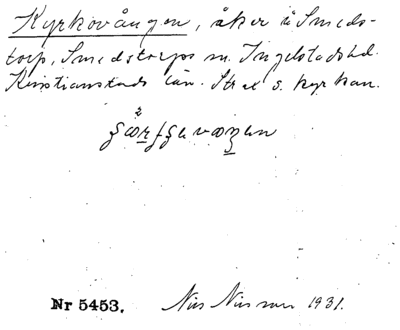 Kyrkovången, åker i Smeds-
torp, Smedstorps sn. Ingelstads hd.
Kristianstads län. Str. s. kyrkan.
Nr 5453. Nils Nilsson 1931.